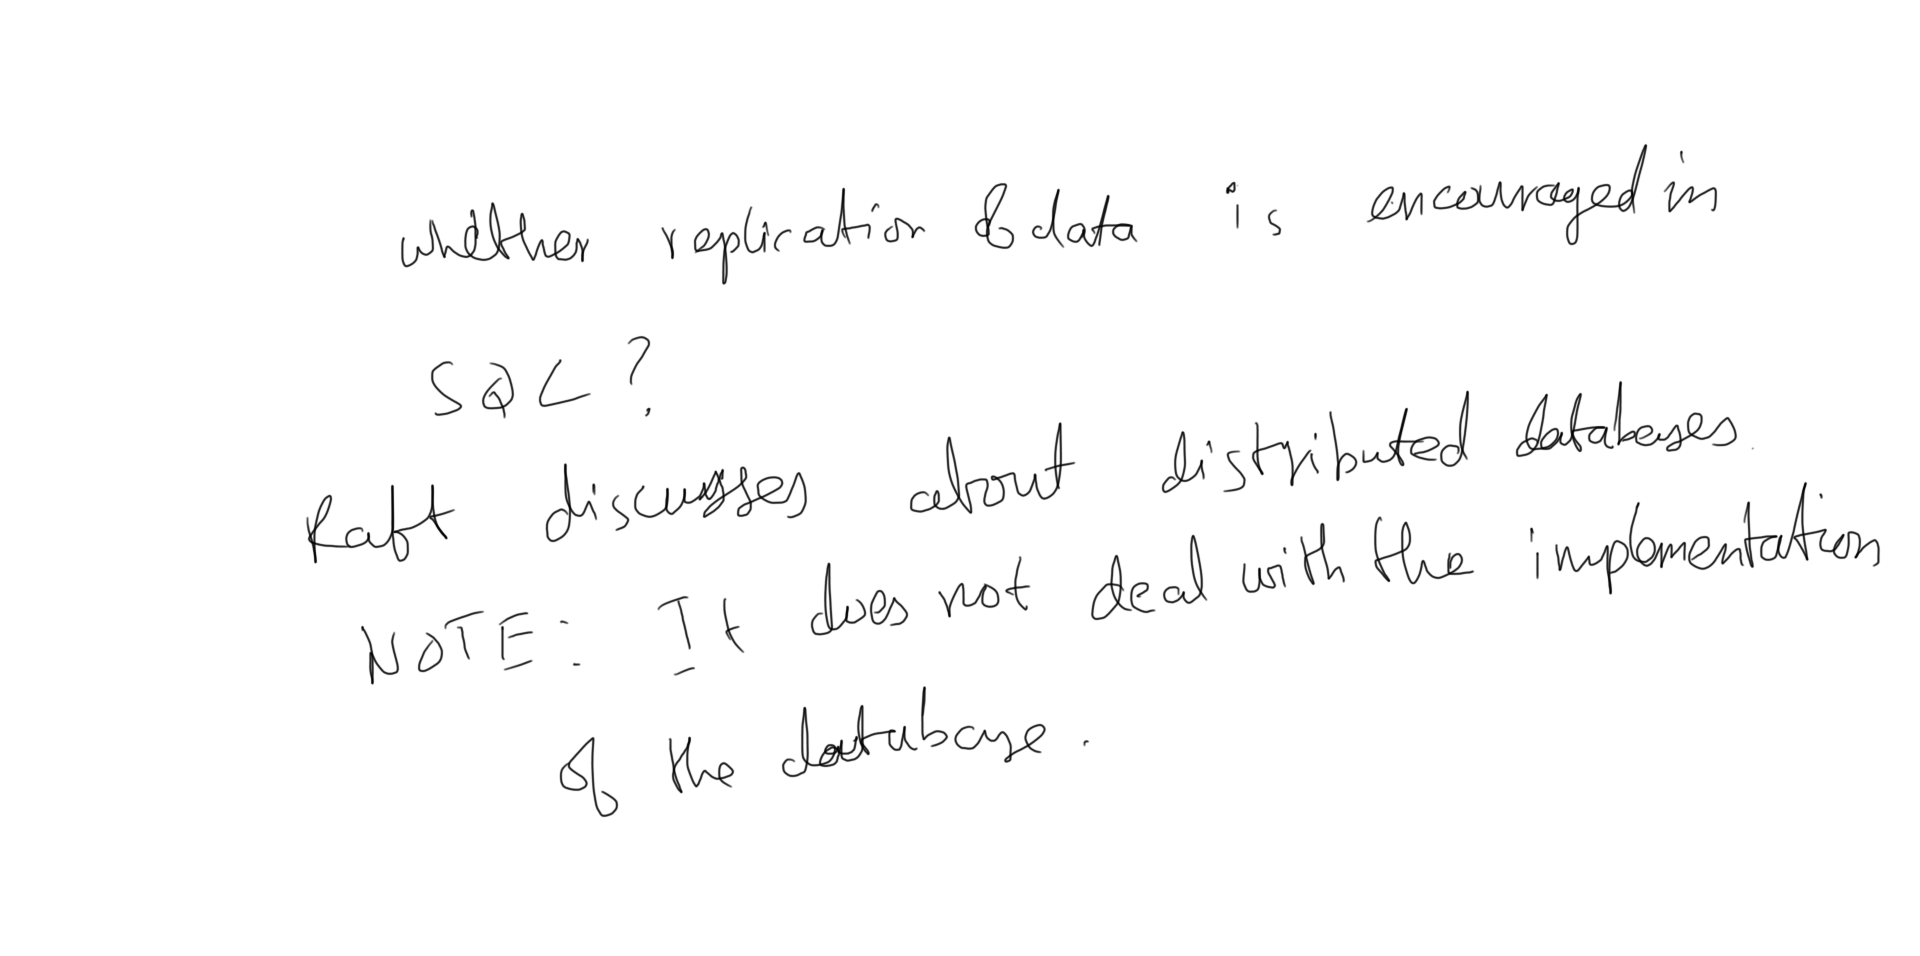 whether replication of data is encouraged in
SQL ?
Raft discusses about distributed databases.
NOTE: It does not deal with the implementation
of the database.